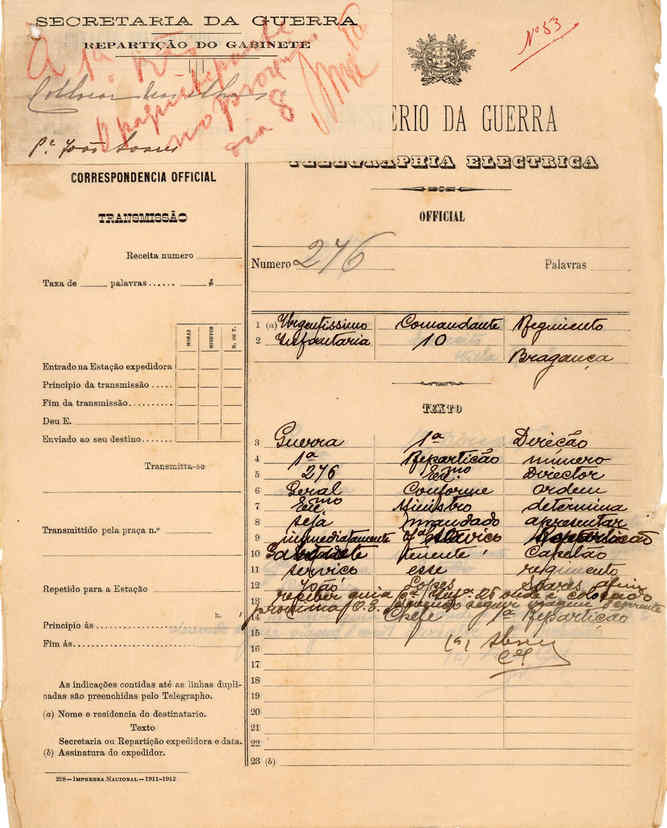 SECRETARIA DA GUERRA
REPARTIÇÃO DO GABINETE
A 1ª Rão
no proximo
dia 8
Pe João Soares
Nº 53
MINISTERIO DA GUERRA
TELEGRAPHIA ELECTRICA
OFFICIAL
Numero 276 Palavras
CORRESPONDENCIA OFFICIAL
TRANSMISSÃO
Receita numero
Taxa de palavras ..... $
HORAS MINUTOS M. OU T.
Entrado na Estação expedidora
Principio da transmissão .....
Fim da transmissão.....
Deu E. .....
Enviado ao seu destino.....
Transmitta-se
Transmittido pela praça n.º
Repetido para a Estação
Principio ás
Fim ás
As indicações contidas até as linhas dupli-
cadas são preenchidas pelo Telegrapho.
(a) Nome e residencia do destinatario.
Texto
Secretaria ou Repartição expedidora e data.
(b) Assinatura do expedidor.
228 — IMPRENSA NACIONAL — 1911-1912
1 (a) Urgentissimo Comandante Regimento
2 Infantaria 10
Bragança
TEXTO
3 Guerra 1ª Direção
4 1ª Repartição numero
5 276 Exmo Director
6 Geral Conforme ordem
7 Exmo Ministro determina
8 seja mandado apresentar
9 immediatamente 1ª Repartição
10 tenente Capelão
11 serviço esse regimento
12 João Lopes Soares afim
13 receber guia Infª 25 onde é colocado
14 proxima O.E. devendo seguir
15 Chefe 1ª Repartição
16 (a) Abreu
17 Cel
18
19
20
21
22
23 (b)